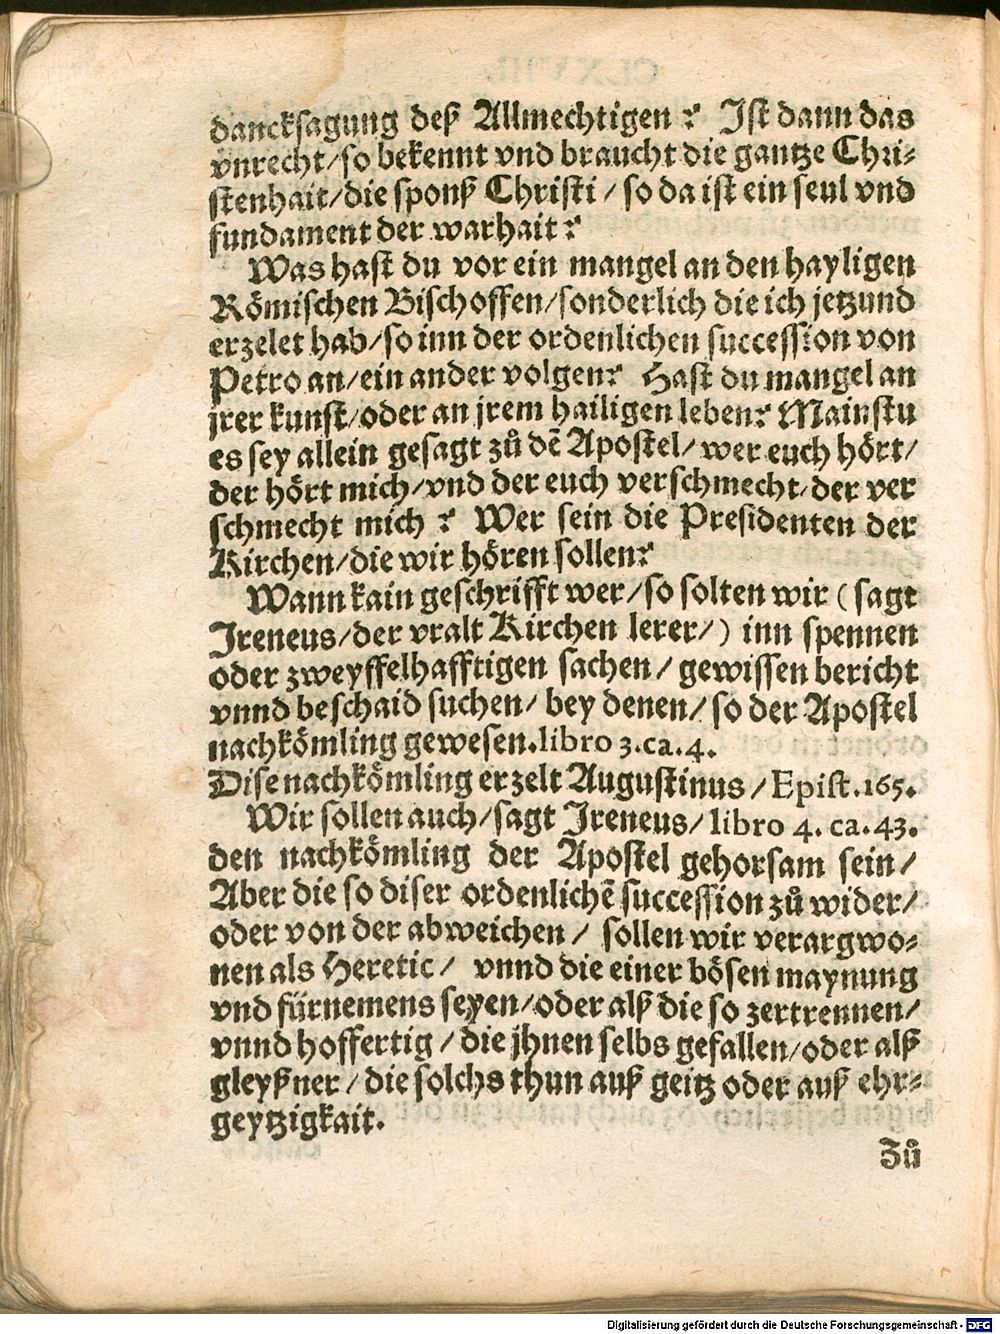 dancksagung deß Allmechtigen? Ist dann das
vnrecht/so bekennt vnd braucht die gantze Chri-
stenhait/die sponß Christi/so da ist ein seul vnd
fundament der warhait?
Was hast du vor ein mangel an den hayligen
Römischen Bischoffen/sonderlich die ich jetzund
erzelet hab/so inn der ordenlichen succession von
Petro an/ein ander volgen? Hast du mangel an
jrer kunst/oder an jrem hailigen leben? Mainstu
es sey allein gesagt zů dẽ Apostel/wer euch hört/
der hört mich/vnd der euch verschmecht/der ver
schmecht mich? Wer sein die Presidenten der
Kirchen/die wir hören sollen?
Wann kain geschrifft wer/so solten wir (sagt
Jreneus/der vralt Kirchen lerer/) inn spennen
oder zweyffelhafftigen sachen/gewissen bericht
vnnd beschaid suchen/bey denen/so der Apostel
nachkömling gewesen.libro 3.ca.4.
Dise nachkömling erzelt Augustinus/Epist.165.
Wir sollen auch/sagt Jreneus/libro 4. ca.43.
den nachkömling der Apostel gehorsam sein/
Aber die so diser ordenlichẽ succession zů wider/
oder von der abweichen/sollen wir verargwo-
nen als Heretic/vnnd die einer bösen maynung
vnd fürnemens seyen/oder alß die so zertrennen/
vnnd hoffertig/die jhnen selbs gefallen/oder alß
gleyßner/die solchs thun auß geitz oder auß ehr-
geytzigkait.
Zů
Digitalisierung gefördert durch die Deutsche Forschungsgemeinschaft - DFG